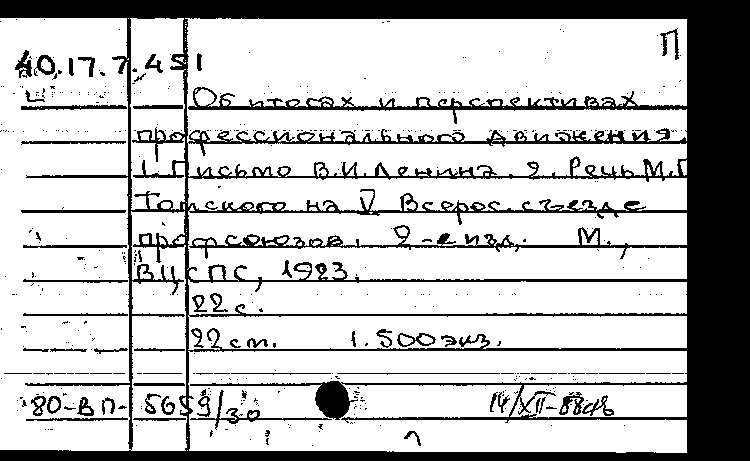 П
40.17.7.451
Об итогах и перспективах
профессионального движения.
1. Письмо В.И. Ленина. 2. Речь М.П
Томского на V Всерос. съезде
профсоюзов. 2-е изд. М.,
ВЦСПС, 1923.
22 с.
22 см. 1.500 экз.
80-ВП- 5659/30 14/XII-88